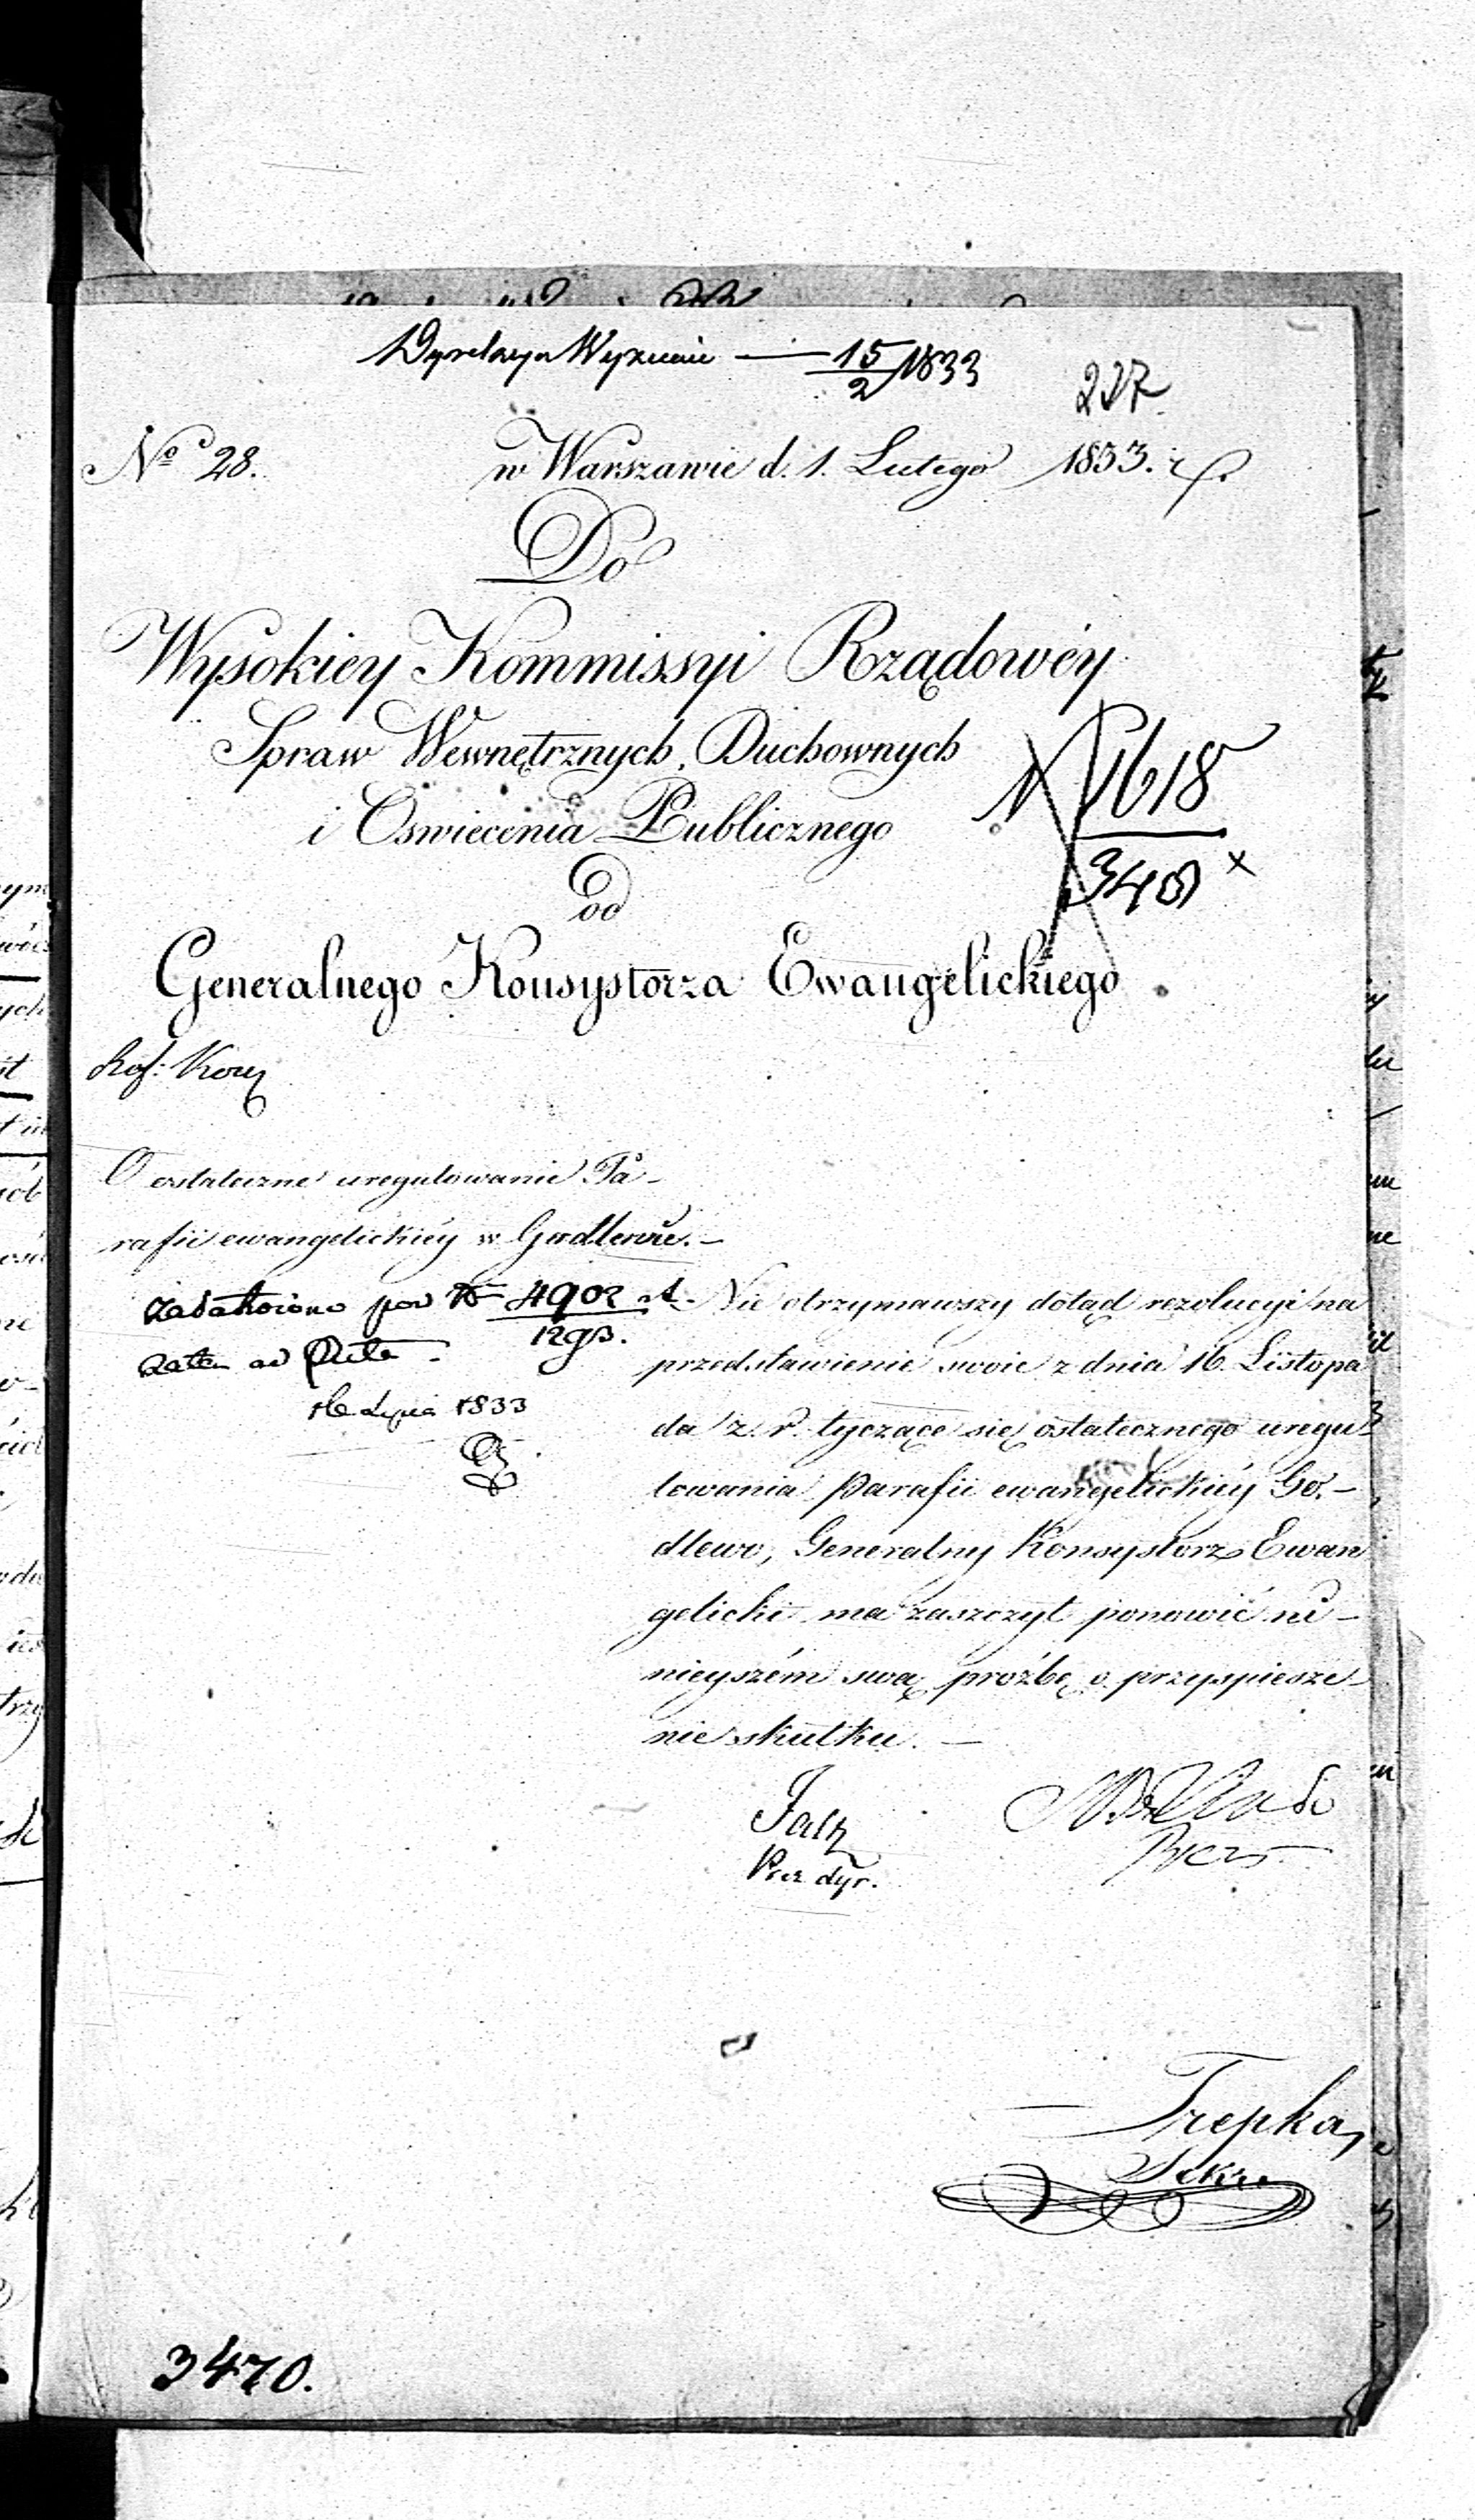 Dyrekcya Wyznań — 15/2 1833
227
No 28. w Warszawie d. 1. Lutego 1833. r.
Do
Wysokiey Kommissyi Rządowéy
Spraw Wewnętrznych, Duchownych
i Oswiecenia Publicznego
N 1618
348 x
od
Generalnego Konsystorza Ewangelickiego.
O ostateczne uregulowanie Pa-
rafii ewangelickiéy w Godlewie.—
Załatwiono pod No 4902
12gb.
ad Acta.
16 Lipca 1833
Nie otrzymawszy dotąd rezolucyi na
przedstawienie swoie z dnia 16. Listopa
da z. r. tyczące się ostatecznego uregu-
lowania parafii ewangelickiéy Go-
dlewo, Generalny Konsystorz Ewan
gelicki ma zaszczyt ponowić ni-
nieyszém swą prożbę o przyspiesze-
nie skutku.—
Trepka,
Sekr.
3470.